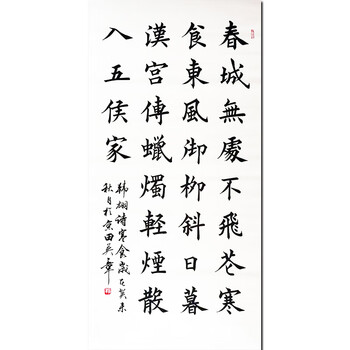 春城無處不飛花寒
食東風御柳斜日暮
漢宮傳蠟燭輕煙散
入五侯家
韩翃诗寒食歲在癸未
秋月於京田英章